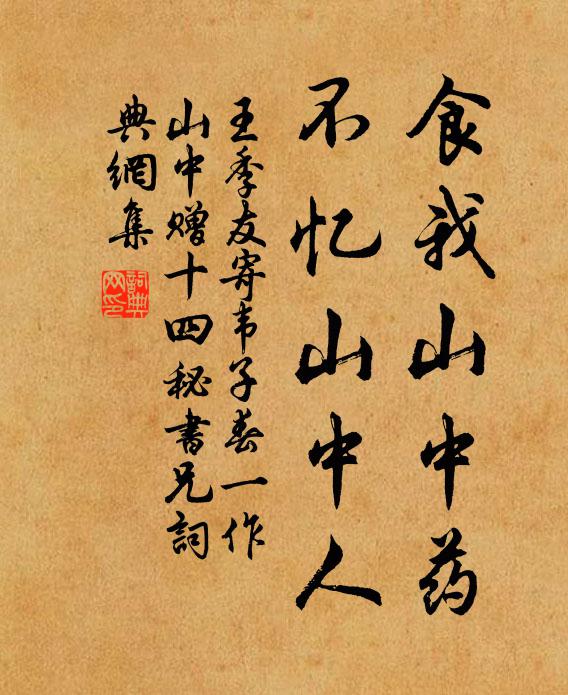 食我山中药
不忆山中人
王季友寄韦子春一作
山中赠十四秘书兄詞
典網集
詞典网印